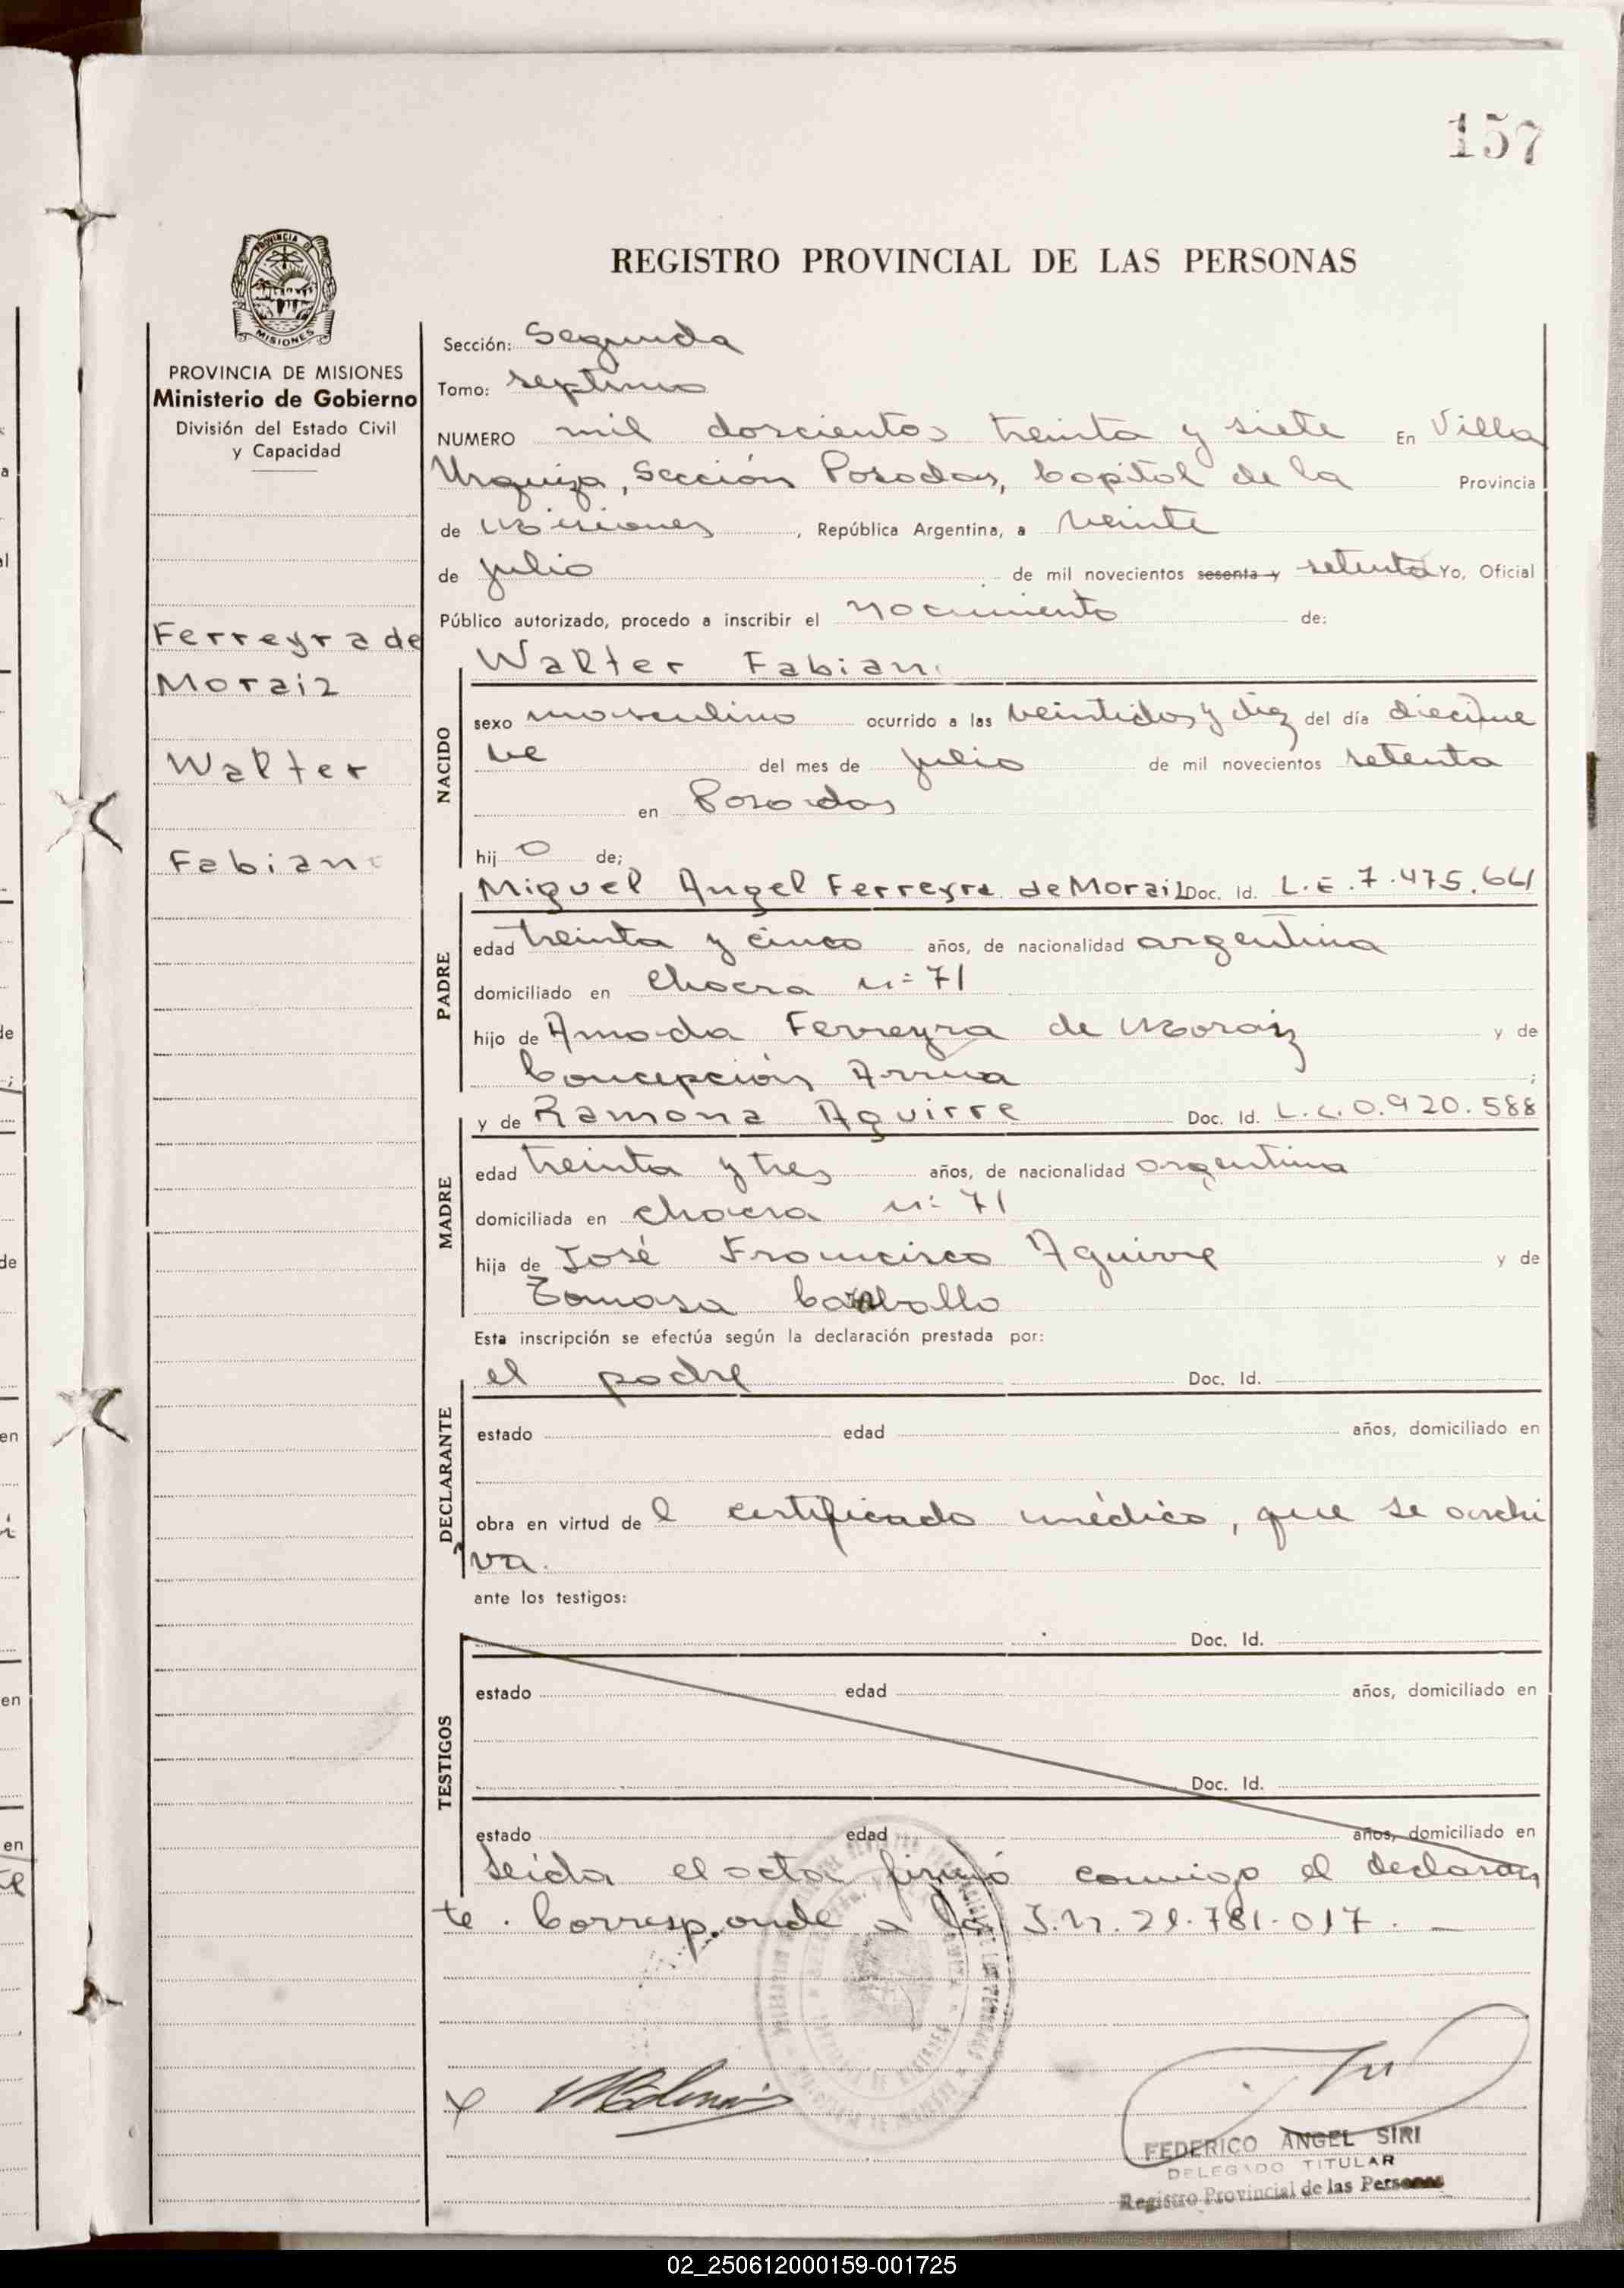 157
PROVINCIA DE MISIONES
REGISTRO PROVINCIAL DE LAS PERSONAS
PROVINCIA DE MISIONES
Ministerio de Gobierno
División del Estado Civil
y Capacidad
Ferreyra de
Moraiz
Walter
Fabian
Sección: Segunda
Tomo: septimo
NUMERO mil doscientos treinta y siete En Villa
Urquiza, Sección Posadas, Capital de la Provincia
de Misiones, República Argentina, a veinte
de julio de mil novecientos sesenta y setenta Yo, Oficial
Público autorizado, procedo a inscribir el nacimiento de:
Walter Fabian
NACIDO
sexo masculino ocurrido a las veintidos y diez del día diecinue
ve del mes de julio de mil novecientos setenta
en Posadas
hijo de;
Miguel Angel Ferreyra de Moraiz Doc. Id. L.E. 7.475.661
PADRE
edad treinta y cinco años, de nacionalidad argentina
domiciliado en Chacra n=71
hijo de Amada Ferreyra de Moraiz y de
Concepción Arrua ;
y de Ramona Aguirre Doc. Id. L.C. 0.920.588
MADRE
edad treinta y tres años, de nacionalidad argentina
domiciliada en chacra n: 71
hija de José Francisco Aguirre y de
Tomasa Carballo
Esta inscripción se efectúa según la declaración prestada por:
el padre Doc. Id.
DECLARANTE
estado edad años, domiciliado en
obra en virtud de l certificado médico, que se archi
va.
ante los testigos:
Doc. Id.
TESTIGOS
estado edad años, domiciliado en
Doc. Id.
estado edad años, domiciliado en
Leída el acta firmó conmigo el declaran
te. Corresponde a la I.N. 21.781.017. —
FEDERICO ANGEL SIRI
DELEGADO TITULAR
Registro Provincial de las Personas
02_250612000159-001725